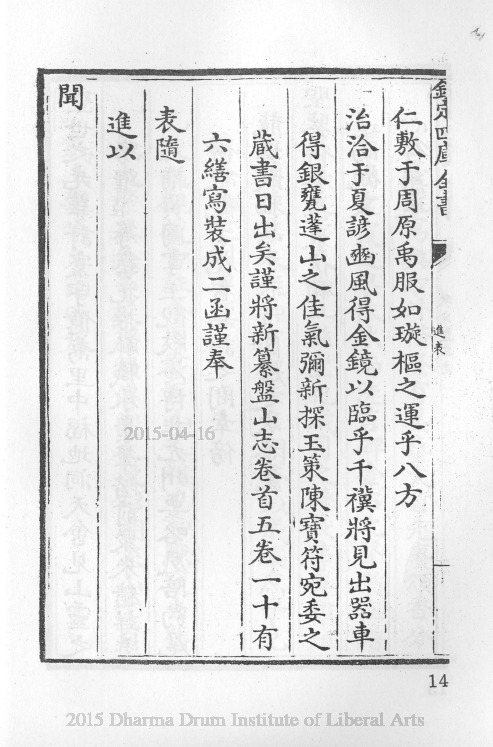 欽定四庫全書
進表
仁敷于周原禹服如璇樞之運乎八方
治洽于夏諺豳風得金鏡以臨乎千禩將見出器車
得銀甕蓬山之佳氣彌新探玉策陳寶符宛委之
藏書日出矣謹將新纂盤山志卷首五卷一十有
六繕寫裝成二函謹奉
表隨
進以
聞
14
2015-04-16
2015 Dharma Drum Institute of Liberal Arts